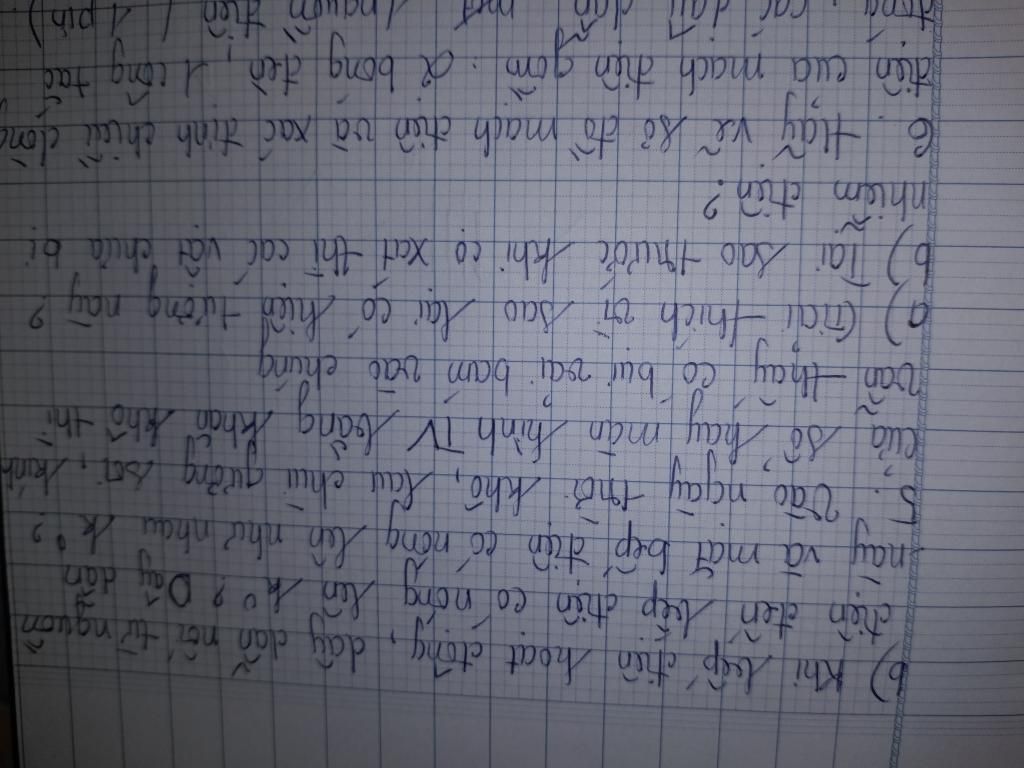 b) Khi bếp điện hoạt động, dây dẫn nối từ nguồn
điện đến bếp điện có nóng lên k°? Dây dẫn
này và mặt bếp điện có nóng lên như nhau k°?
5. Vào ngày trời khô, lau chùi gương soi, kính
cửa sổ hay màn hình TV bằng khăn khô thì
vẫn thấy có bụi vải bám vào chúng
a) Giải thích vì sao lại có hiện tượng này?
b) Tại sao trước khi cọ xát thì các vật chưa bị
nhiễm điện?
6. Hãy vẽ sơ đồ mạch điện và xác định chiều dòng
điện của mạch điện gồm: 2 bóng đèn, 1 công tắc
đóng, các dây dẫn, một nguồn điện (1 pin)